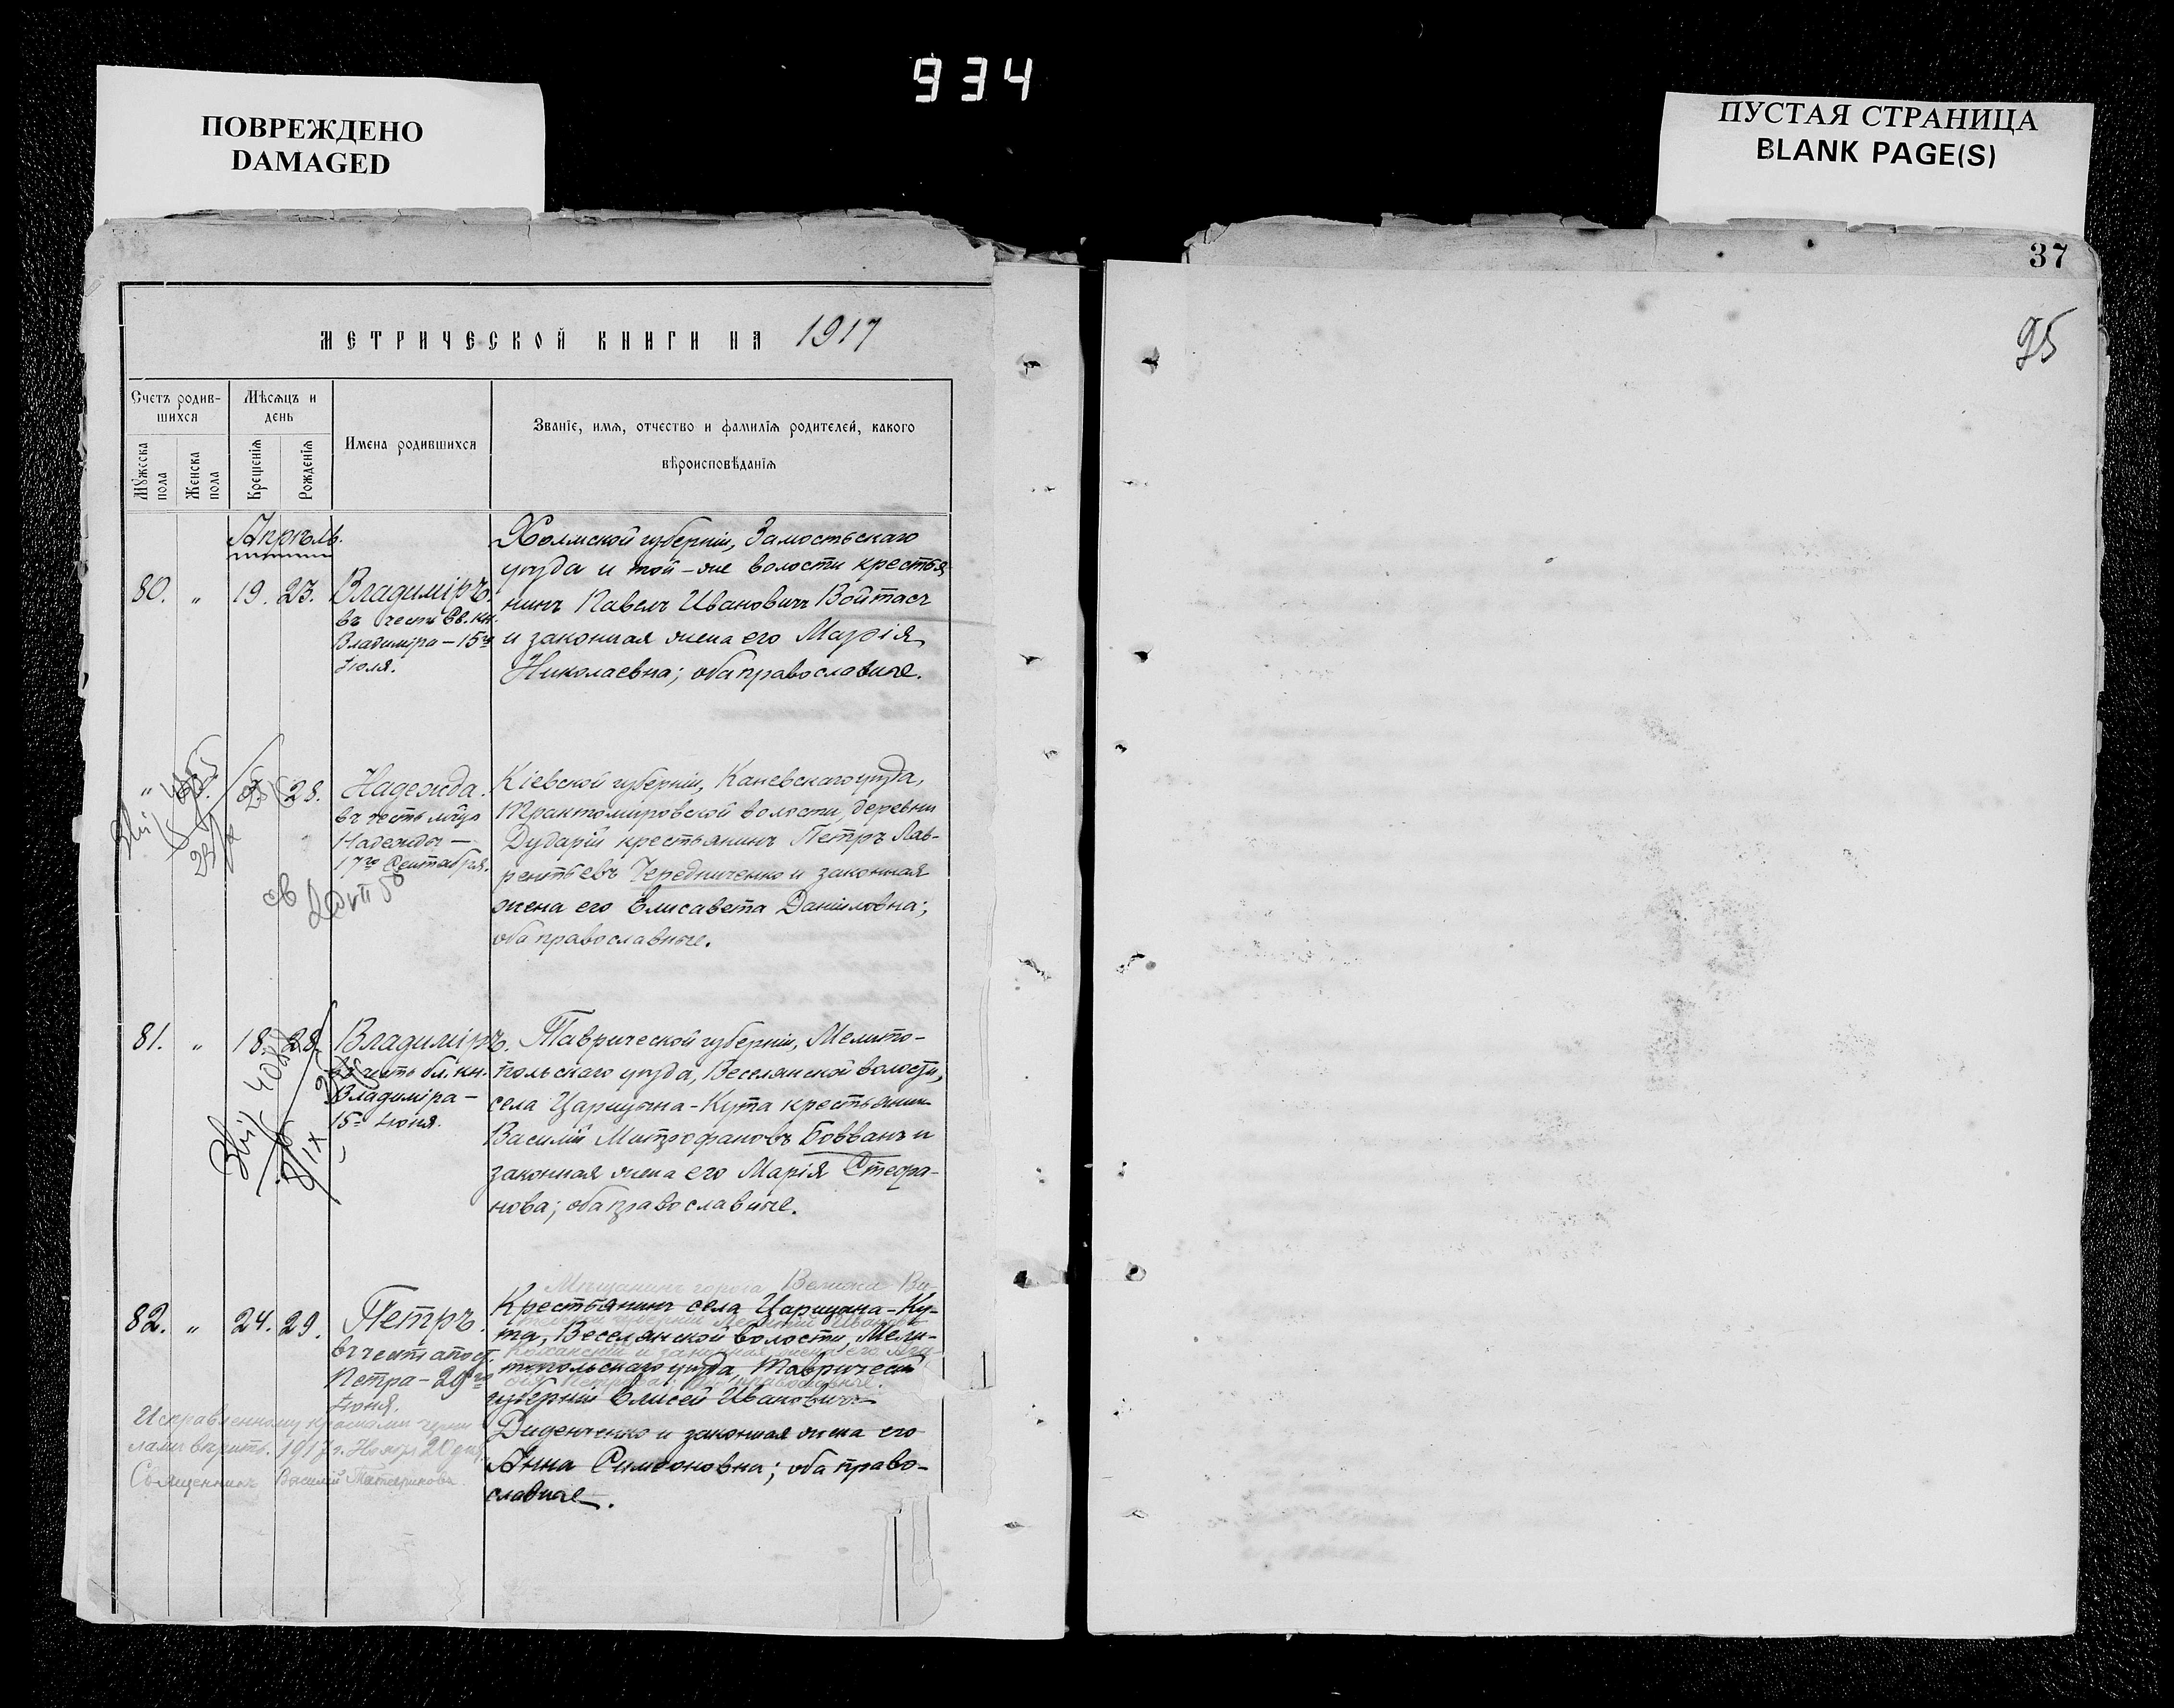 934
ПОВРЕЖДЕНО
DAMAGED
ПУСТАЯ СТРАНИЦА
BLANK PAGE(S)
37
95
МЕТРИЧЕСКОЙ КНИГИ НА 1917
Счетъ родив-
шихся
Мѣсяцъ и
день
Имена родившихся
Званіе, имя, отчество и фамилія родителей, какого
вѣроисповѣданія
Мужеска
пола
Женска
пола
Крещенія
Рожденія
Апрѣль.
80. „ 19. 23. Владиміръ.
въ честь Св. кн.
Владиміра – 15го
Іюля.
Холмской губерніи, Замостьскаго
уѣзда и той-же волости крестья
нинъ Павелъ Ивановичъ Войтасъ
и законная жена его Марія
Николаевна; оба православные.
„ 28. Надежда.
въ честь мчцы
Надежды —
17го Сентября.
Кіевской губерніи, Каневскаго уѣзда,
Трактомировской волости, деревни
Дударій крестьянинъ Петръ Лав-
рентьевъ Чередниченко и законная
жена его Елисавета Даніиловна;
оба православные.
81. „ 18. 28. Владиміръ.
въ честь бл. кн.
Владиміра –
15го Іюля.
Таврической губерніи, Мелито-
польскаго уѣзда, Веселянской волости,
села Царицына-Кута крестьянин
Василій Митрофановъ Бовванъ и
законная жена его Марія Стефа-
нова; оба православные.
82. „ 24. 29. Петръ.
въ честь апост.
Петра – 29го
Іюня.
Мѣщанинъ города Велижа Ви-
Крестьянинъ села Царицына-Ку-
та, Веселянской волости, Мели-
топольскаго уѣзда, Таврической
губерніи Елисей Ивановичъ
Диденченко и законная жена его
Анна Симеоновна; оба право-
славные.
Исправленному красными черни
лами вѣрить. 1917 г. Ноября 20 дня
Священникъ Василій